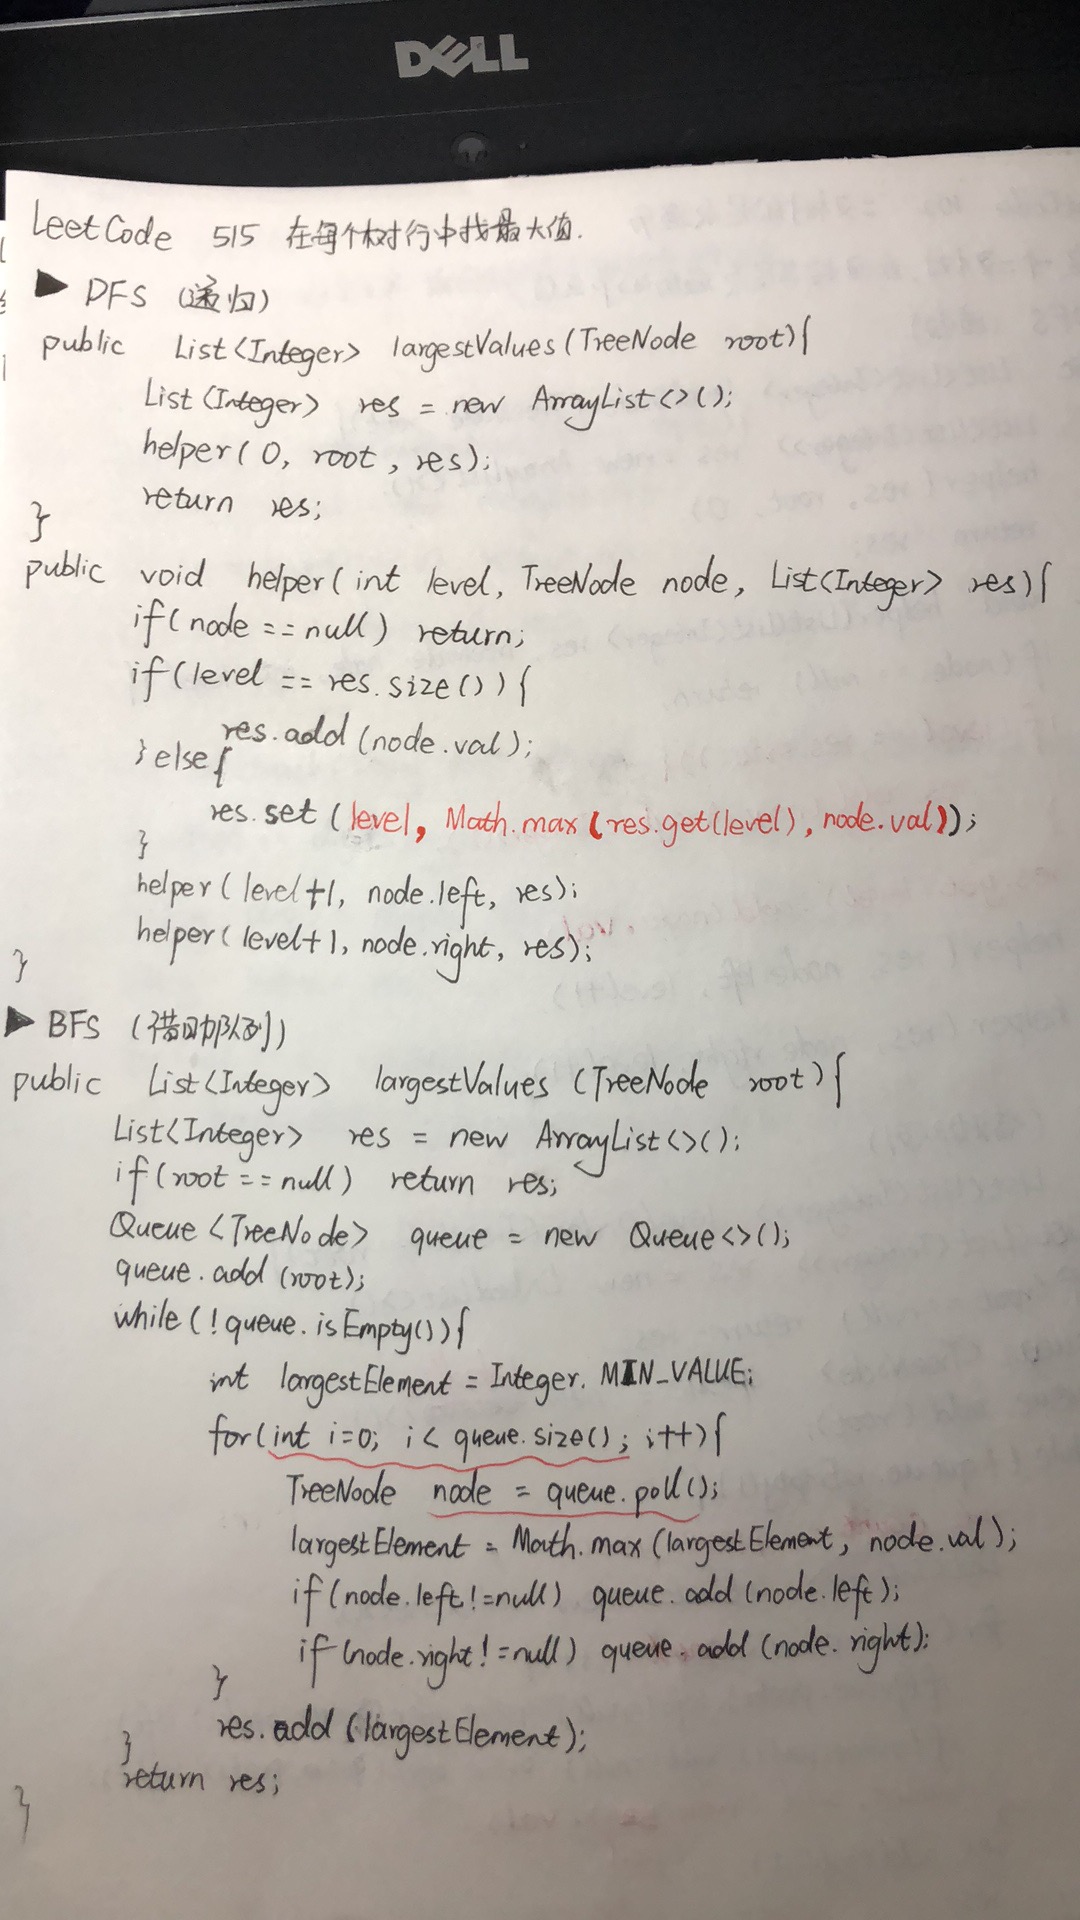 DELL
LeetCode 515 在每个树行中找最大值.
▶ DFS (递归)
public List<Integer> largestValues(TreeNode root){
List<Integer> res = new ArrayList<>();
helper(0, root, res);
return res;
}
public void helper(int level, TreeNode node, List<Integer> res){
if(node == null) return;
if(level == res.size()){
res.add(node.val);
}else{
res.set(level, Math.max(res.get(level), node.val));
}
helper(level+1, node.left, res);
helper(level+1, node.right, res);
}
▶ BFS (借助队列)
public List<Integer> largestValues (TreeNode root){
List<Integer> res = new ArrayList<>();
if(root == null) return res;
Queue<TreeNode> queue = new Queue<>();
queue.add(root);
while(!queue.isEmpty()){
int largestElement = Integer.MIN_VALUE;
for(int i=0; i< queue.size(); i++){
TreeNode node = queue.poll();
largestElement = Math.max(largestElement, node.val);
if(node.left!=null) queue.add(node.left);
if(node.right!=null) queue.add(node.right);
}
res.add(largestElement);
}
return res;
}